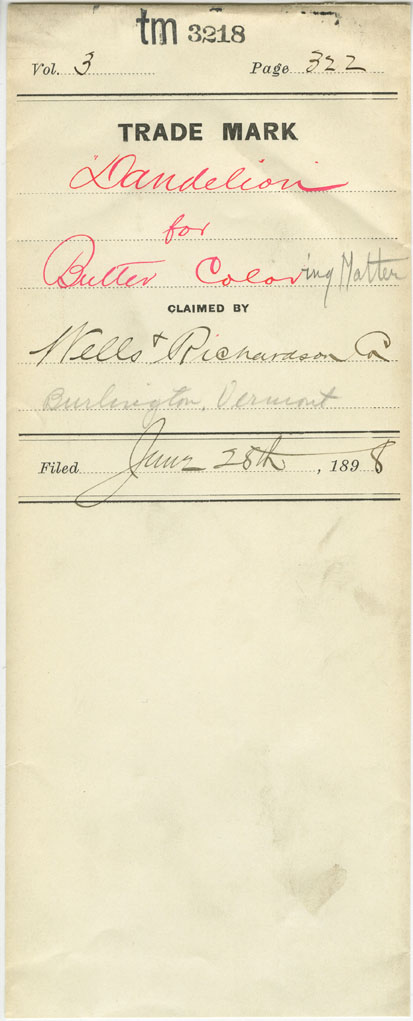 tm 3218
Vol. 3 Page 322
TRADE MARK
"Dandelion"
for
Butter Coloring Matter
CLAIMED BY
Wells & Richardson Co
Burlington, Vermont
Filed June 28th, 1898